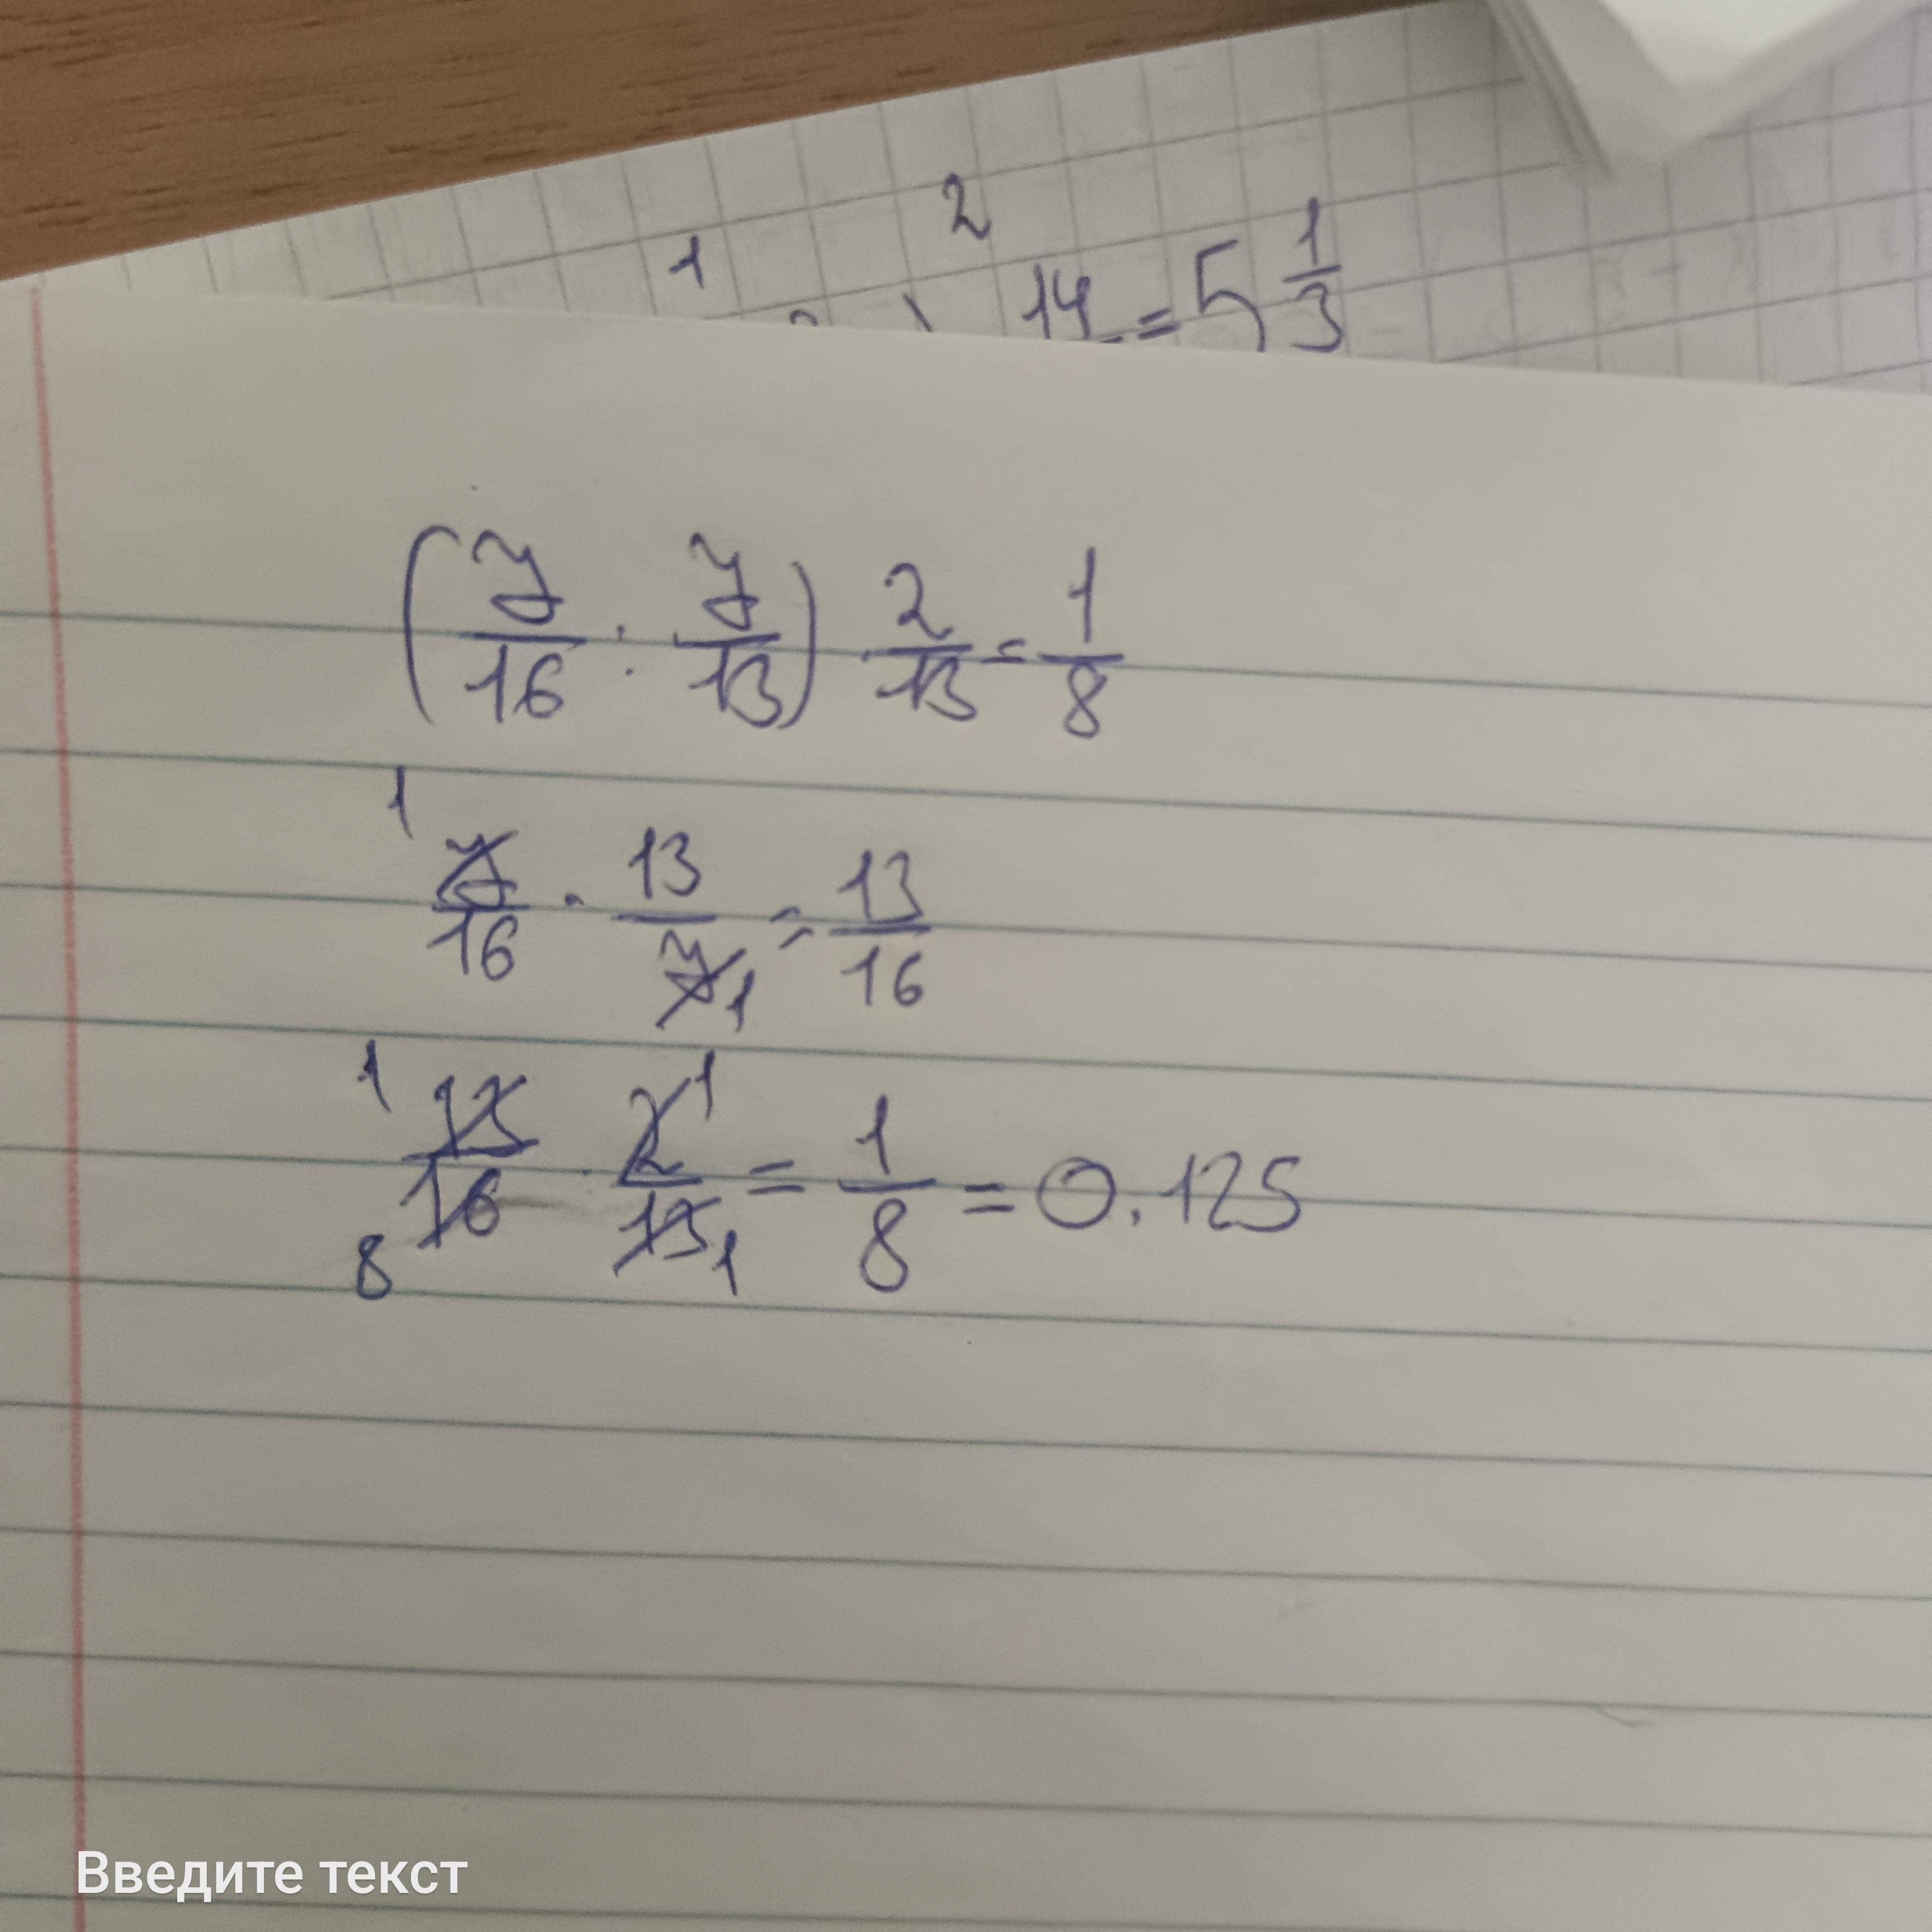 1 2
14 = 5 1/3
(7/16 : 7/13) · 2/13 = 1/8
1 7/16 · 13/7 1 = 13/16
1 13/16 8 · 2/13 1 1 = 1/8 = 0.125
Введите текст